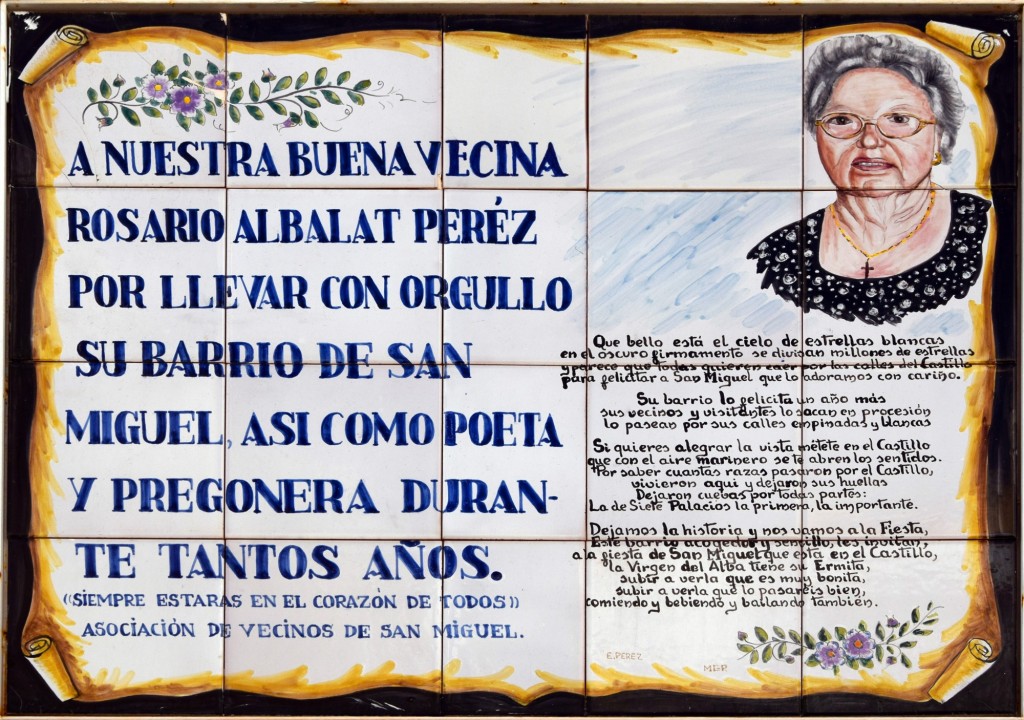 A NUESTRA BUENA VECINA
ROSARIO ALBALAT PERÉZ
POR LLEVAR CON ORGULLO
SU BARRIO DE SAN
MIGUEL, ASI COMO POETA
Y PREGONERA DURAN-
TE TANTOS AÑOS.
((SIEMPRE ESTARAS EN EL CORAZÓN DE TODOS))
ASOCIACIÓN DE VECINOS DE SAN MIGUEL.
Que bello está el cielo de estrellas blancas
en el oscuro firmamento se divisan millones de estrellas
y parece que todas quieren caer por las calles del Castillo
para felicitar a San Miguel que lo adoramos con cariño.
Su barrio lo felicita un año más
sus vecinos y visitantes lo sacan en procesión
lo pasean por sus calles empinadas y blancas
Si quieres alegrar la vista métete en el Castillo
que con el aire marinero se te abren los sentidos.
Por saber cuantas razas pasaron por el Castillo,
vivieron aqui y dejaron sus huellas
Dejaron cuevas por todas partes:
La de Siete Palacios la primera, la importante.
Dejamos la historia y nos vamos a la Fiesta,
Este barrio acogedor y sencillo, les invitan,
a la fiesta de San Miguel que está en el Castillo,
la Virgen del Alba tiene su Ermita,
subir a verla que es muy bonita,
subir a verla que lo pasareis bien,
comiendo y bebiendo y bailando también.
E. PEREZ
M.G.P.